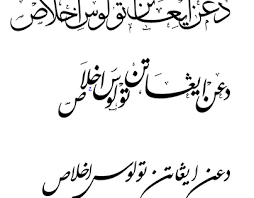 دعن ايڠاتن تولوس اخلاص
دعن ايڠاتن تولوس اخلاص
دعن ايڠاتن تولوس اخلاص